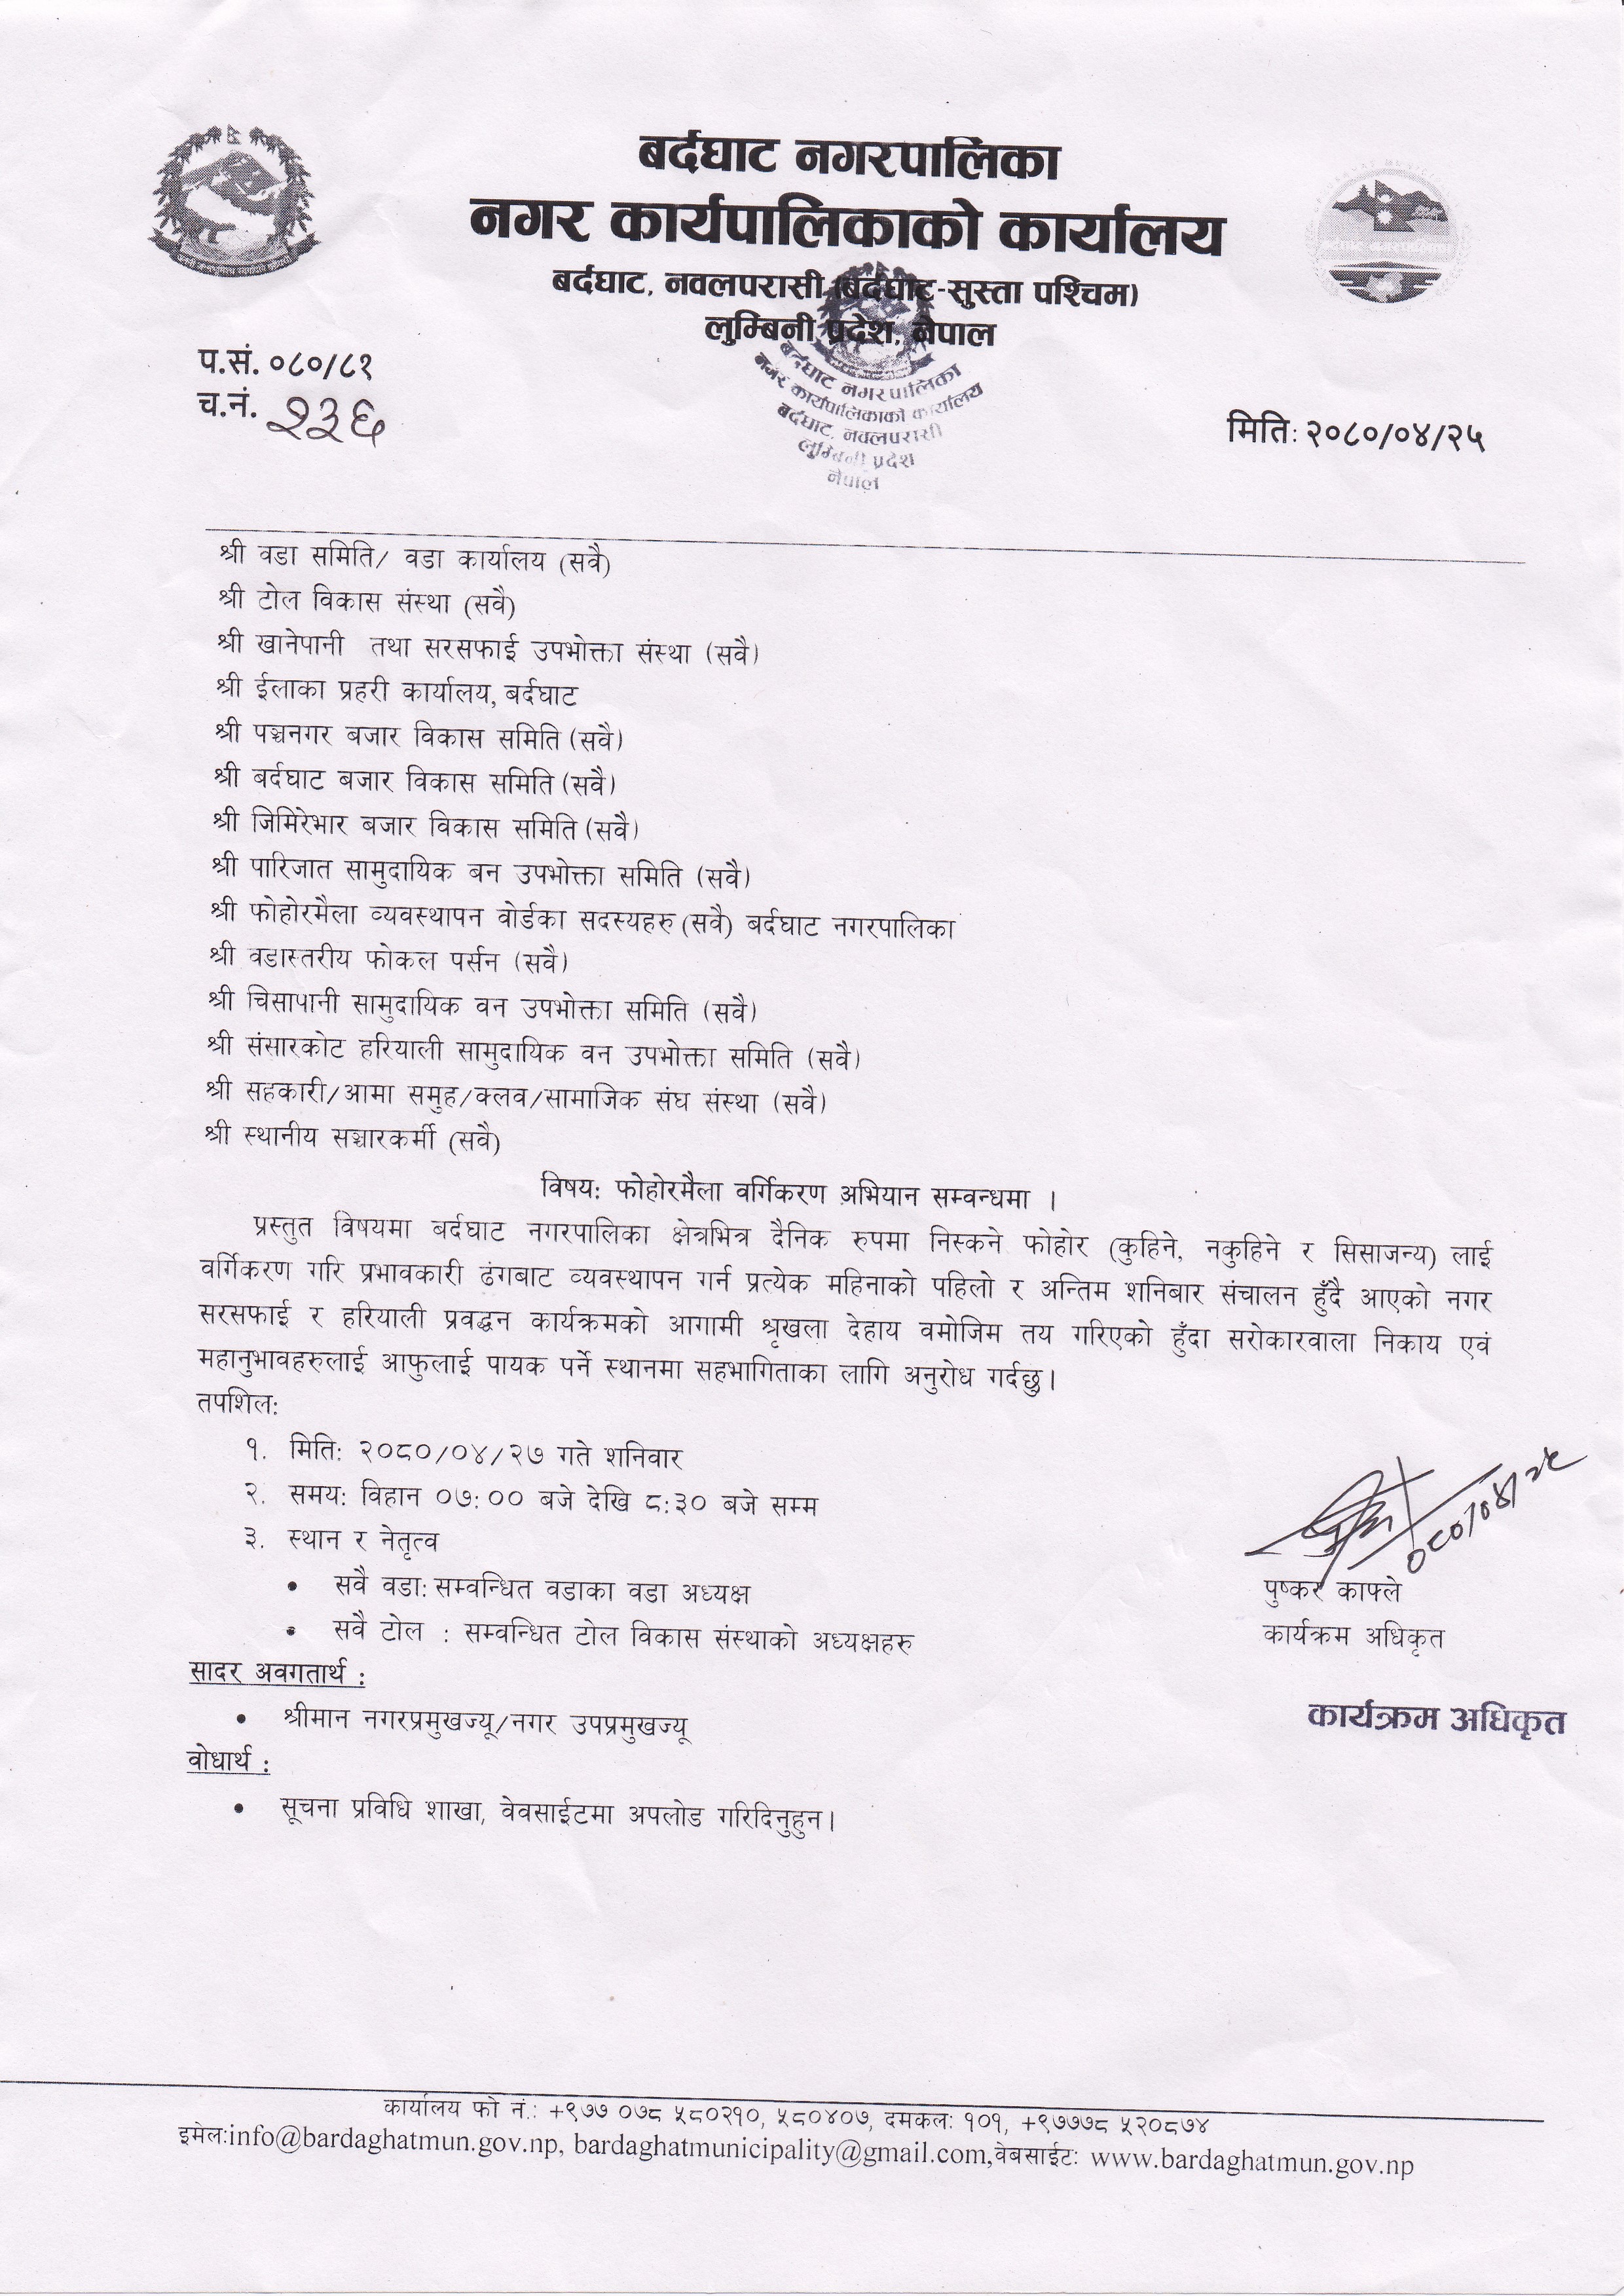 बर्दघाट नगरपालिका
नगर कार्यपालिकाको कार्यालय
बर्दघाट, नवलपरासी (बर्दघाट-सुस्ता पश्चिम)
लुम्बिनी प्रदेश, नेपाल
बर्दघाट नगरपालिका
नगर कार्यपालिकाको कार्यालय
बर्दघाट, नवलपरासी
लुम्बिनी प्रदेश
नेपाल
प.सं. ०८०/८१
च.नं. २३६
मिति: २०८०/०४/२५
श्री वडा समिति/ वडा कार्यालय (सवै)
श्री टोल विकास संस्था (सवै)
श्री खानेपानी तथा सरसफाई उपभोक्ता संस्था (सवै)
श्री ईलाका प्रहरी कार्यालय, बर्दघाट
श्री पञ्चनगर बजार विकास समिति (सवै)
श्री बर्दघाट बजार विकास समिति (सवै)
श्री जिमिरेभार बजार विकास समिति (सवै)
श्री पारिजात सामुदायिक बन उपभोक्ता समिति (सवै)
श्री फोहोरमैला व्यवस्थापन वोर्डका सदस्यहरु (सवै) बर्दघाट नगरपालिका
श्री वडास्तरीय फोकल पर्सन (सवै)
श्री चिसापानी सामुदायिक वन उपभोक्ता समिति (सवै)
श्री संसारकोट हरियाली सामुदायिक वन उपभोक्ता समिति (सवै)
श्री सहकारी/आमा समुह/क्लव/सामाजिक संघ संस्था (सवै)
श्री स्थानीय सञ्चारकर्मी (सवै)
विषय: फोहोरमैला वर्गिकरण अभियान सम्वन्धमा ।
प्रस्तुत विषयमा बर्दघाट नगरपालिका क्षेत्रभित्र दैनिक रुपमा निस्कने फोहोर (कुहिने, नकुहिने र सिसाजन्य) लाई
वर्गिकरण गरि प्रभावकारी ढंगबाट व्यवस्थापन गर्न प्रत्येक महिनाको पहिलो र अन्तिम शनिबार संचालन हुँदै आएको नगर
सरसफाई र हरियाली प्रवद्धन कार्यक्रमको आगामी श्रृखला देहाय वमोजिम तय गरिएको हुँदा सरोकारवाला निकाय एवं
महानुभावहरुलाई आफुलाई पायक पर्ने स्थानमा सहभागिताका लागि अनुरोध गर्दछु।
तपशिल:
१. मिति: २०८०/०४/२७ गते शनिवार
२. समय: विहान ०७:०० बजे देखि ८:३० बजे सम्म
३. स्थान र नेतृत्व
• सवै वडा: सम्वन्धित वडाका वडा अध्यक्ष
• सवै टोल : सम्वन्धित टोल विकास संस्थाको अध्यक्षहरु
०८०/०४/२५
पुष्कर काफ्ले
कार्यक्रम अधिकृत
कार्यक्रम अधिकृत
सादर अवगतार्थ :
• श्रीमान नगरप्रमुखज्यू/नगर उपप्रमुखज्यू
वोधार्थ :
• सूचना प्रविधि शाखा, वेवसाईटमा अपलोड गरिदिनुहुन।
कार्यालय फो नं.: +९७७ ०७८ ५८०२१०, ५८०४०७, दमकल: १०१, +९७७७८ ५२०८७४
इमेल:info@bardaghatmun.gov.np, bardaghatmunicipality@gmail.com,वेबसाईट: www.bardaghatmun.gov.np